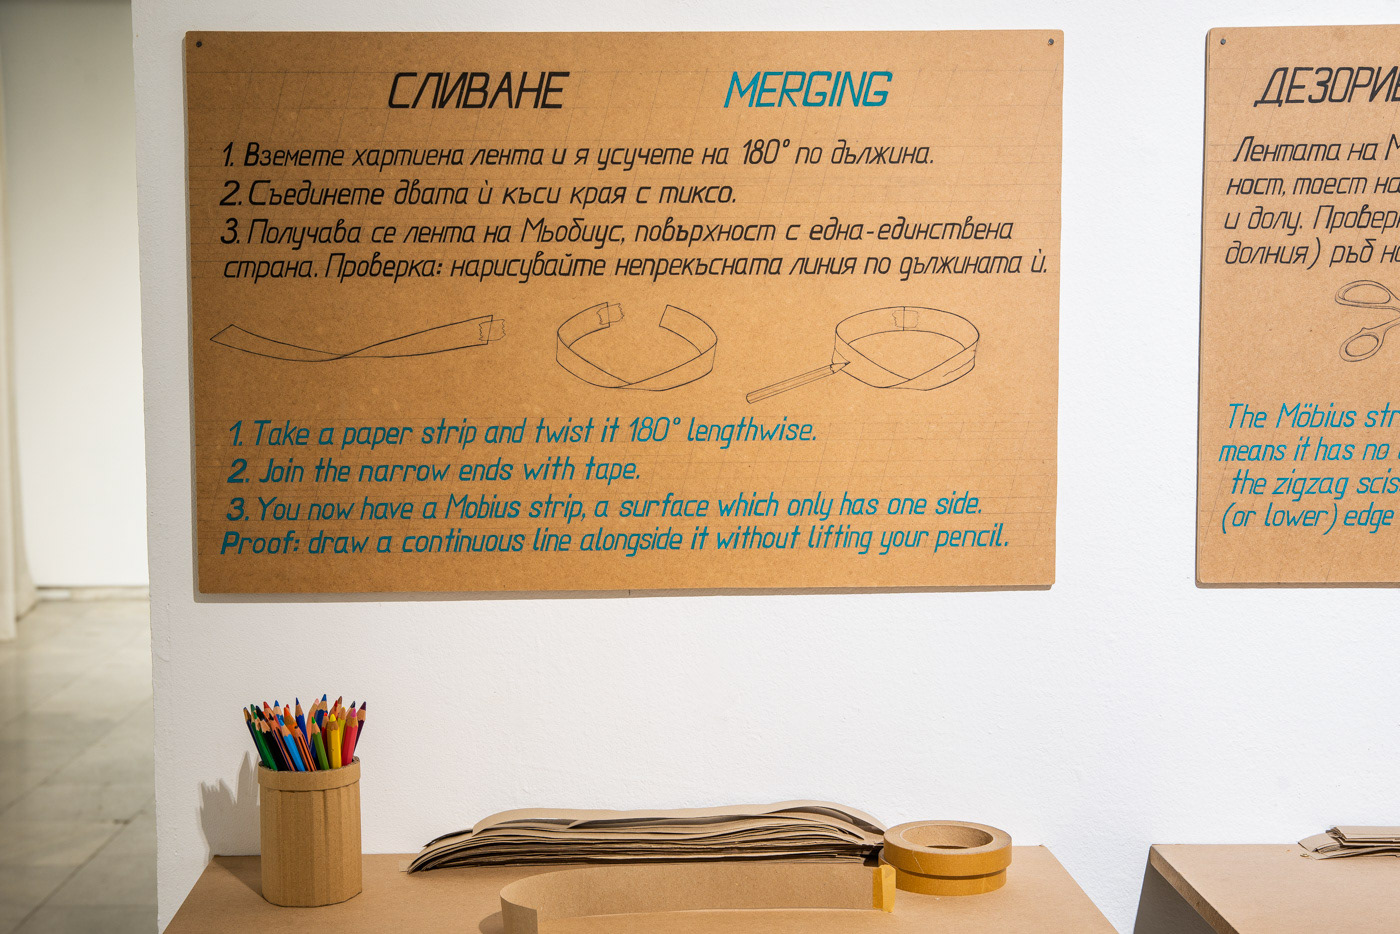 СЛИВАНЕ MERGING
1. Вземете хартиена лента и я усучете на 180° по дължина.
2. Съединете двата ѝ къси края с тиксо.
3. Получава се лента на Мьобиус, повърхност с една-единствена
страна. Проверка: нарисувайте непрекъсната линия по дължината ѝ.
1. Take a paper strip and twist it 180° lengthwise.
2. Join the narrow ends with tape.
3. You now have a Mobius strip, a surface which only has one side.
Proof: draw a continuous line alongside it without lifting your pencil.
Лентата на
ност, тоест
и долу.
долния) ръб
The Möbius
means it has no
the zigzag
(or lower) edge